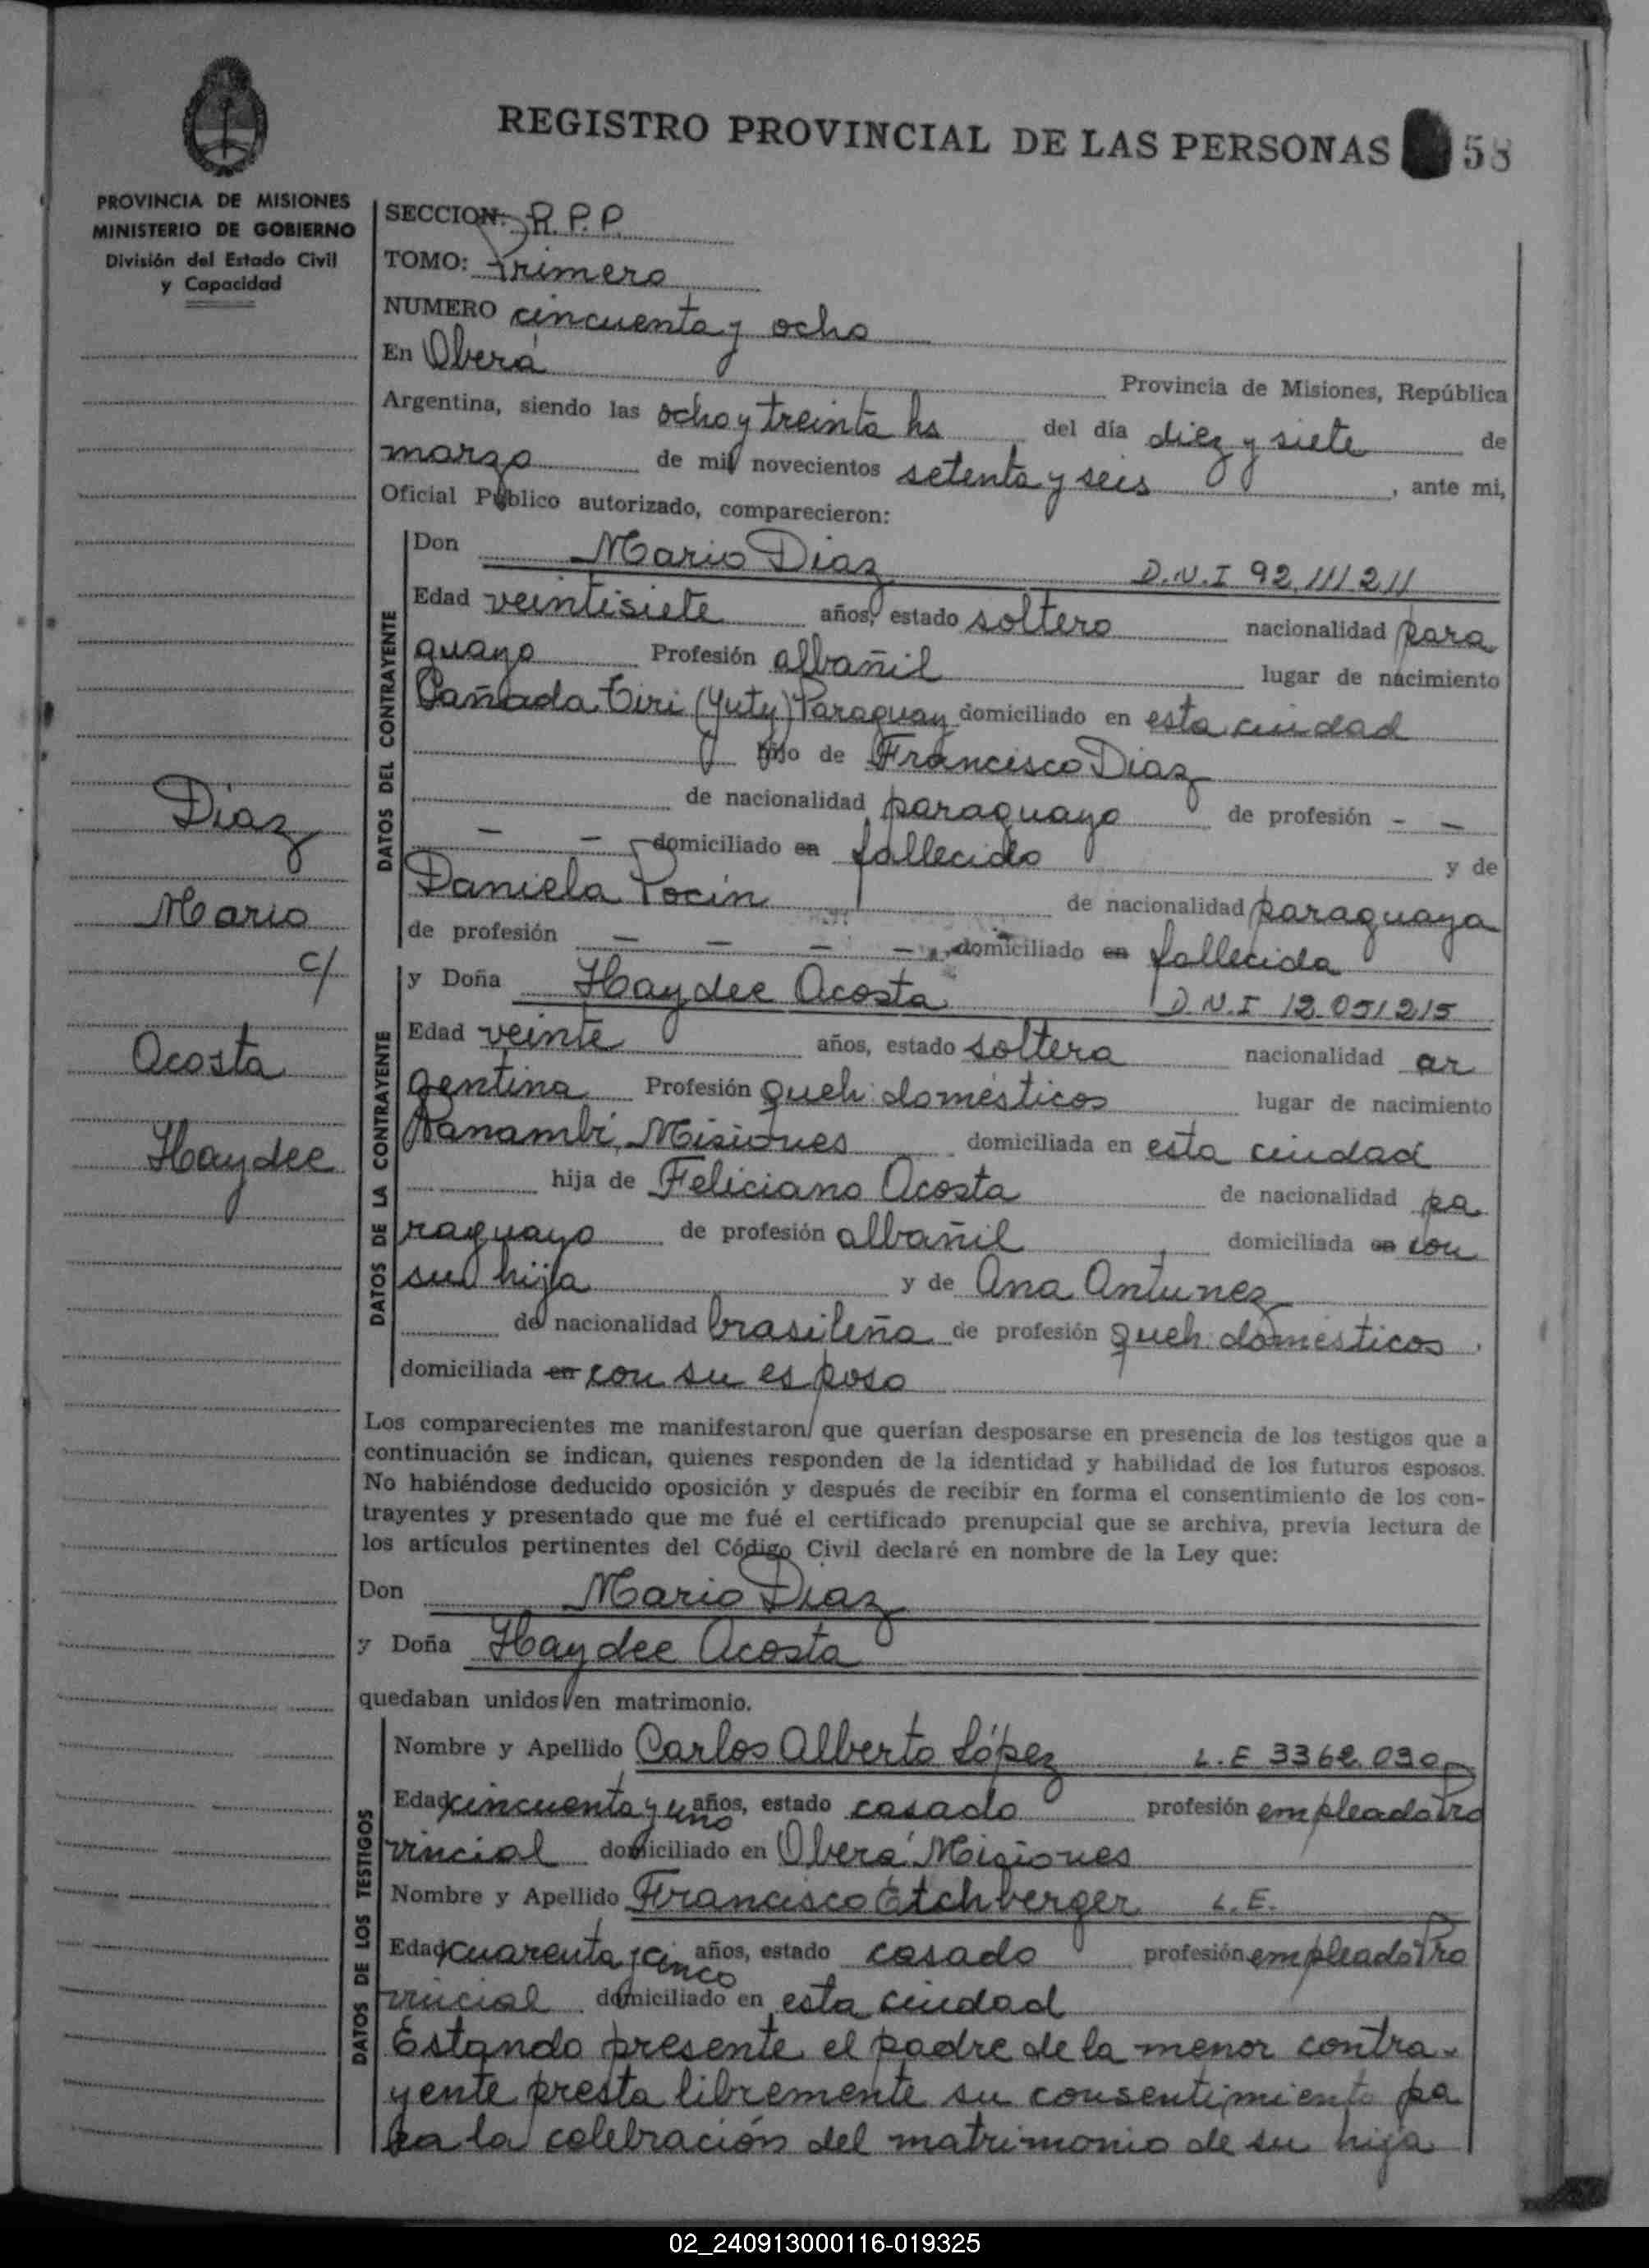 REGISTRO PROVINCIAL DE LAS PERSONAS 58
PROVINCIA DE MISIONES
MINISTERIO DE GOBIERNO
División del Estado Civil
y Capacidad
SECCION: R.P.P.
TOMO: Primero
NUMERO cincuenta y ocho
En Oberá Provincia de Misiones, República
Argentina, siendo las ocho y treinta hs del día diez y siete de
marzo de mil novecientos setenta y seis, ante mi,
Oficial Público autorizado, comparecieron:
DATOS DEL CONTRAYENTE
Don Mario Diaz D.N.I 92.111.211
Edad veintisiete años, estado soltero nacionalidad para
guayo Profesión albañil lugar de nacimiento
Cañada Tiri (Yuty) Paraguay domiciliado en esta ciudad
hijo de Francisco Diaz
de nacionalidad paraguayo de profesión - -
- - domiciliado en fallecido y de
Daniela Pocin de nacionalidad paraguaya
de profesión - - - - domiciliado en fallecida
Diaz
Mario
c/
Acosta
Haydee
DATOS DE LA CONTRAYENTE
y Doña Haydee Acosta D.N.I 12.051.215
Edad veinte años, estado soltera nacionalidad ar
gentina Profesión queh. domésticos lugar de nacimiento
Panambí, Misiones domiciliada en esta ciudad
hija de Feliciano Acosta de nacionalidad pa
raguayo de profesión albañil domiciliada en con
su hija y de Ana Antunez
de nacionalidad brasileña de profesión queh. domésticos
domiciliada en con su esposo
Los comparecientes me manifestaron que querían desposarse en presencia de los testigos que a
continuación se indican, quienes responden de la identidad y habilidad de los futuros esposos.
No habiéndose deducido oposición y después de recibir en forma el consentimiento de los con-
trayentes y presentado que me fué el certificado prenupcial que se archiva, previa lectura de
los artículos pertinentes del Código Civil declaré en nombre de la Ley que:
Don Mario Diaz
y Doña Haydee Acosta
quedaban unidos en matrimonio.
DATOS DE LOS TESTIGOS
Nombre y Apellido Carlos Alberto López L.E 3362.030
Edad cincuenta y uno años, estado casado profesión empleado Pro
vincial domiciliado en Oberá Misiones
Nombre y Apellido Francisco Etchberger L.E.
Edad cuarenta y cinco años, estado casado profesión empleado Pro
vincial domiciliado en esta ciudad
Estando presente el padre de la menor contra-
yente presta libremente su consentimiento pa
ra la celebración del matrimonio de su hija
02_240913000116-019325